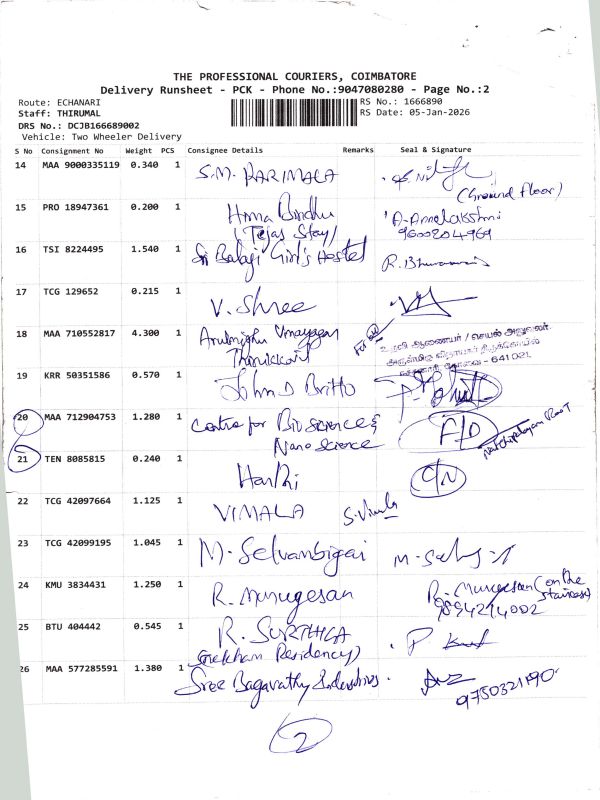 THE PROFESSIONAL COURIERS, COIMBATORE
Delivery Runsheet - PCK - Phone No.:9047080280 - Page No.:2
Route: ECHANARI
RS No.: 1666890
Staff: THIRUMAL
RS Date: 05-Jan-2026
DRS No.: DCJB166689002
Vehicle: Two Wheeler Delivery
S No Consignment No Weight PCS Consignee Details Remarks Seal & Signature
14 MAA 9000335119 0.340 1 S.M. PARIMALA
(Ground floor)
15 PRO 18947361 0.200 1 Hima Bindhu A-Annalakshmi
(Tejas Stay) 9600204969
16 TSI 8224495 1.540 1 Sri Balaji Girl's Hostel R.
17 TCG 129652 0.215 1 V. Shree
18 MAA 710552817 4.300 1 Arulmighu Vinayagar
உதவி ஆணையர் / செயல் அலுவலர்
அருள்மிகு விநாயகர் திருக்கோயில்
கோவை - 641021
19 KRR 50351586 0.570 1 John D Britto
20 MAA 712904753 1.280 1 Centre for BioScience & F/D
Nano Science
21 TEN 8085815 0.240 1 C/N
22 TCG 42097664 1.125 1 VIMALA S.Vimala
23 TCG 42099195 1.045 1 M. Selvanbigai
24 KMU 3834431 1.250 1 R. Murugesan R. Murugesan (on the
staircase)
9894214002
25 BTU 404442 0.545 1 R. SURTHIGA P
(Srekham Residency)
26 MAA 577285591 1.380 1 Sree Bagavathy Industries.
9750321190
2